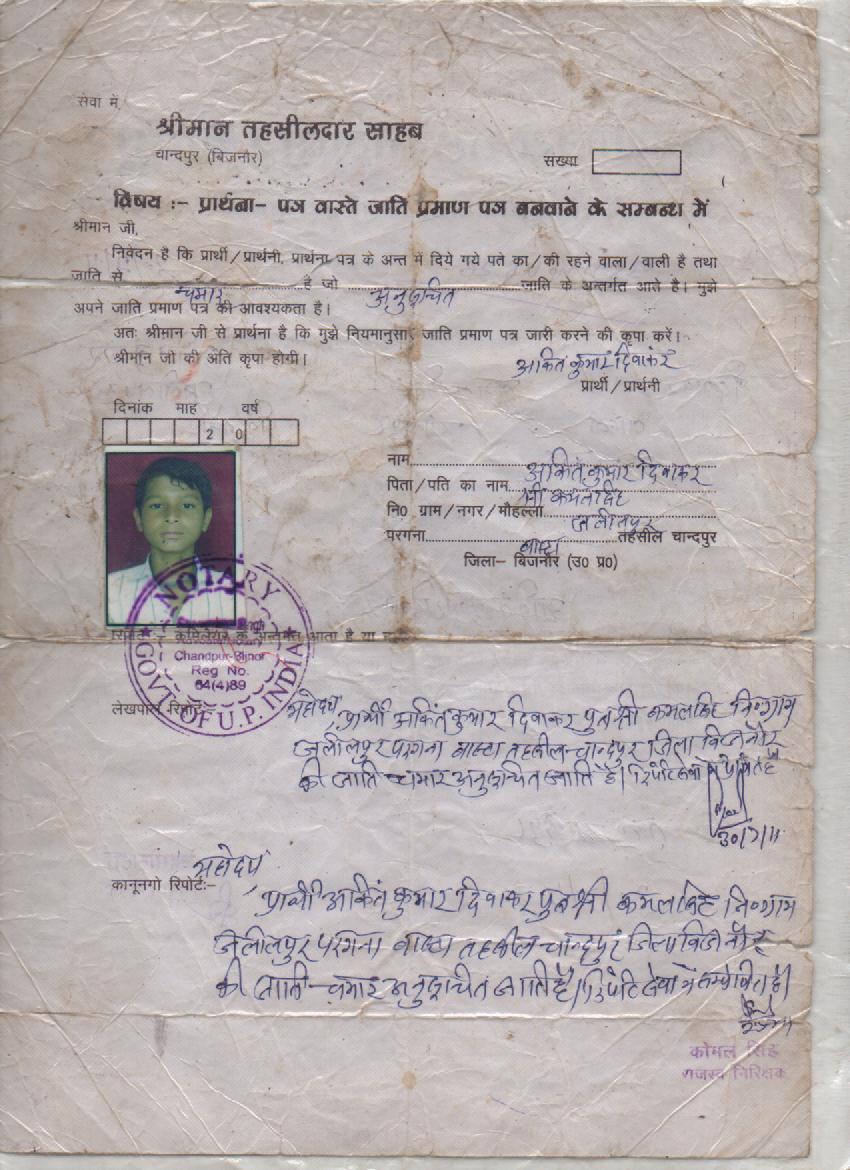 सेवा में,
श्रीमान तहसीलदार साहब
चान्दपुर (बिजनौर)
सख्या
विषय :- प्रार्थना- पत्र वास्ते जाति प्रमाण पत्र बनवाने के सम्बन्ध में
श्रीमान जी,
निवेदन है कि प्रार्थी/प्रार्थनी, प्रार्थना पत्र के अन्त में दिये गये पते का/की रहने वाला/वाली है तथा
जाति से चमार है जो अनुसूचित जाति के अन्तर्गत आते है। मुझे
अपने जाति प्रमाण पत्र की आवश्यकता है।
अतः श्रीमान जी से प्रार्थना है कि मुझे नियमानुसार जाति प्रमाण पत्र जारी करने की कृपा करें।
श्रीमान जी की अति कृपा होगी।
अंकित कुमार दिवाकर
प्रार्थी/प्रार्थनी
दिनांक माह वर्ष
2 0
नाम अंकित कुमार दिवाकर
पिता/पति का नाम श्री
नि0 ग्राम/नगर/मौहल्ला जलीलपुर
परगना बाष्टा तहसील चान्दपुर
जिला- बिजनौर (उ0 प्र0)
NOTARY
Chandpur-Bijnor
Reg No.
64(4)89
GOVT. OF U.P. INDIA
रिपोर्ट :- क्रीमीलेयर के अन्तर्गत आता है या
लेखपाल रिपोर्ट:-
महोदय,
प्रार्थी अंकित कुमार दिवाकर पुत्र श्री कमल सिंह नि० ग्राम
जलीलपुर परगना बाष्टा तहसील-चान्दपुर जिला बिजनौर
की जाति चमार अनुसूचित जाति है। रिपोर्ट सेवा में प्रेषित है
30/7/11
महोदय,
कानूनगो रिपोर्ट:-
प्रार्थी अंकित कुमार दिवाकर पुत्र श्री कमल सिंह नि० ग्राम
जलीलपुर परगना बाष्टा तहसील चान्दपुर जिला बिजनौर
की जाति-चमार अनुसूचित जाति है। रिपोर्ट सेवा में सम्प्रेषित है।
कोमल सिंह
राजस्व निरिक्षक